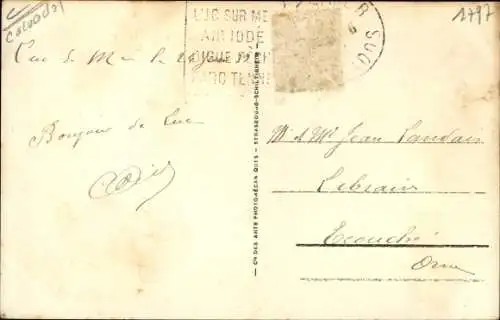 Calvados
1797
LUC SUR ME
AIR IODÉ
DIGUE
PARC TENNI
Luc s/ Mer le
Bonjour de Luc
Cie DES ARTS PHOTOMÉCANIQUES - STRASBOURG-SCHILTIGHEIM
Mr & Me Jean Landais
Libraire
Ecouché
Orne